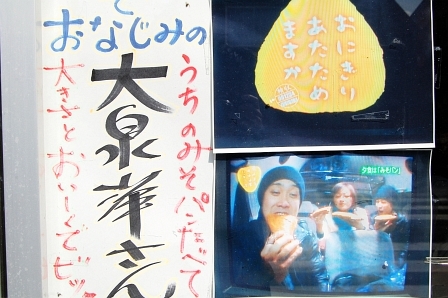 おなじみの
大泉華さん
うちのみそパンたべて
大きさとおいしさでビッ
おにぎり
あたため
ますか
夕食は「みそパン」